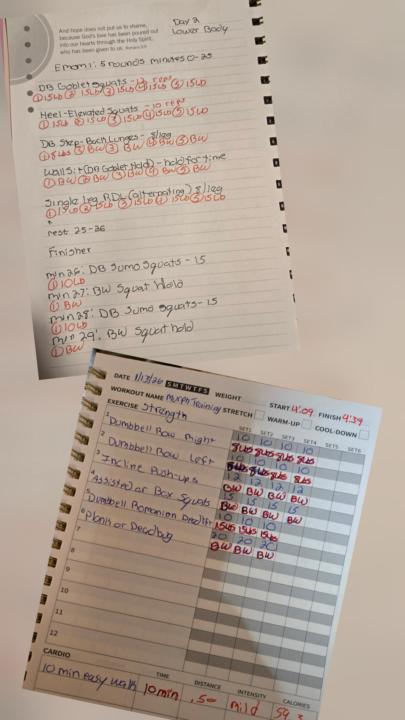 And hope does not put us to shame,
because God's love has been poured out
into our hearts through the Holy Spirit,
who has been given to us. Romans 5:5
Day 2
Lower Body
Emom: 5 rounds minutes 0-25
DB Goblet squats - 12 reps
① 15Lb ② 15Lb ③ 15Lb ④ 15Lb ⑤ 15Lb
Heel-Elevated Squats - 10 reps
① 15Lb ② 15Lb ③ 15Lb ④ 15Lb ⑤ 15Lb
DB Step-Back Lunges - 8/leg
① 8Lbs ② BW ③ BW ④ BW ⑤ BW
Wall Sit (DB Goblet Hold) - hold for time
① BW ② BW ③ BW ④ BW ⑤ BW
Single leg RDL (alternating) 8/leg
① 15Lb ② 15Lb ③ 15Lb ④ 15Lb ⑤ 15Lb
rest 25-26
Finisher
min 26: DB Sumo Squats - 15
① 10Lb
min 27: BW Squat Hold
① BW
min 28: DB Sumo Squats - 15
① 10Lb
min 29: BW Squat hold
① BW
DATE 1/13/26 S M T W T F S WEIGHT START 4:09 FINISH 4:39
WORKOUT NAME Murph Training STRETCH WARM-UP COOL-DOWN
EXERCISE Strength SET1 SET2 SET3 SET4 SET5 SET6
1 Dumbbell Row Right 10 10 10 10
8Lbs 8Lbs 8Lbs 8Lbs
2 Dumbbell Row Left 10 10 10 10
8Lbs 8Lbs 8Lbs 8Lbs
3 Incline Push-ups 12 12 12 12
BW BW BW BW
4 Assisted or Box Squats 15 15 15 15
BW BW BW BW
5 Dumbbell Romanian Deadlift 10 10 10
15Lbs 15Lbs 15Lbs
6 Plank or Deadbug 20 20 20
BW BW BW
7
8
9
10
11
12
CARDIO TIME DISTANCE INTENSITY CALORIES
10 min easy walk 10min .50 mild